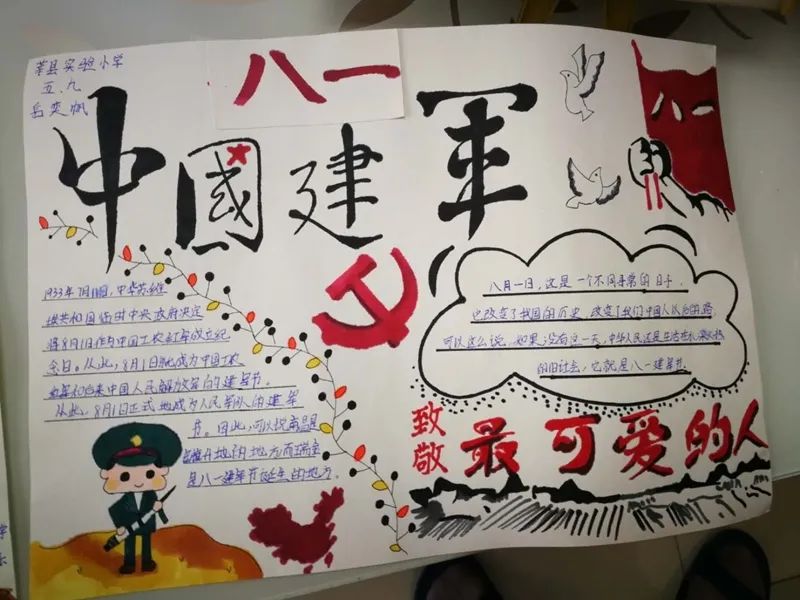 莘县实验小学
五、九
岳奕帆
八一
中國建軍
八一
1933年7月11日，中华苏维
埃共和国临时中央政府决定
将8月1日作为中国工农红军成立纪
念日。从此，8月1日就成为中国工农
红军和后来中国人民解放军的建军节。
从此，8月1日正式地成为人民军队的建军
节。因此，可以说南昌
是旗升地的地方而瑞金
是八一建军节诞生的地方。
八月一日，这是一个不同寻常的日子，
它改变了我国的历史，改变了我们中国人以后的路，
可以这么说，如果没有这一天，中华人民还是生活在
的旧社会，它就是八一建军节。
致敬
最可爱的人